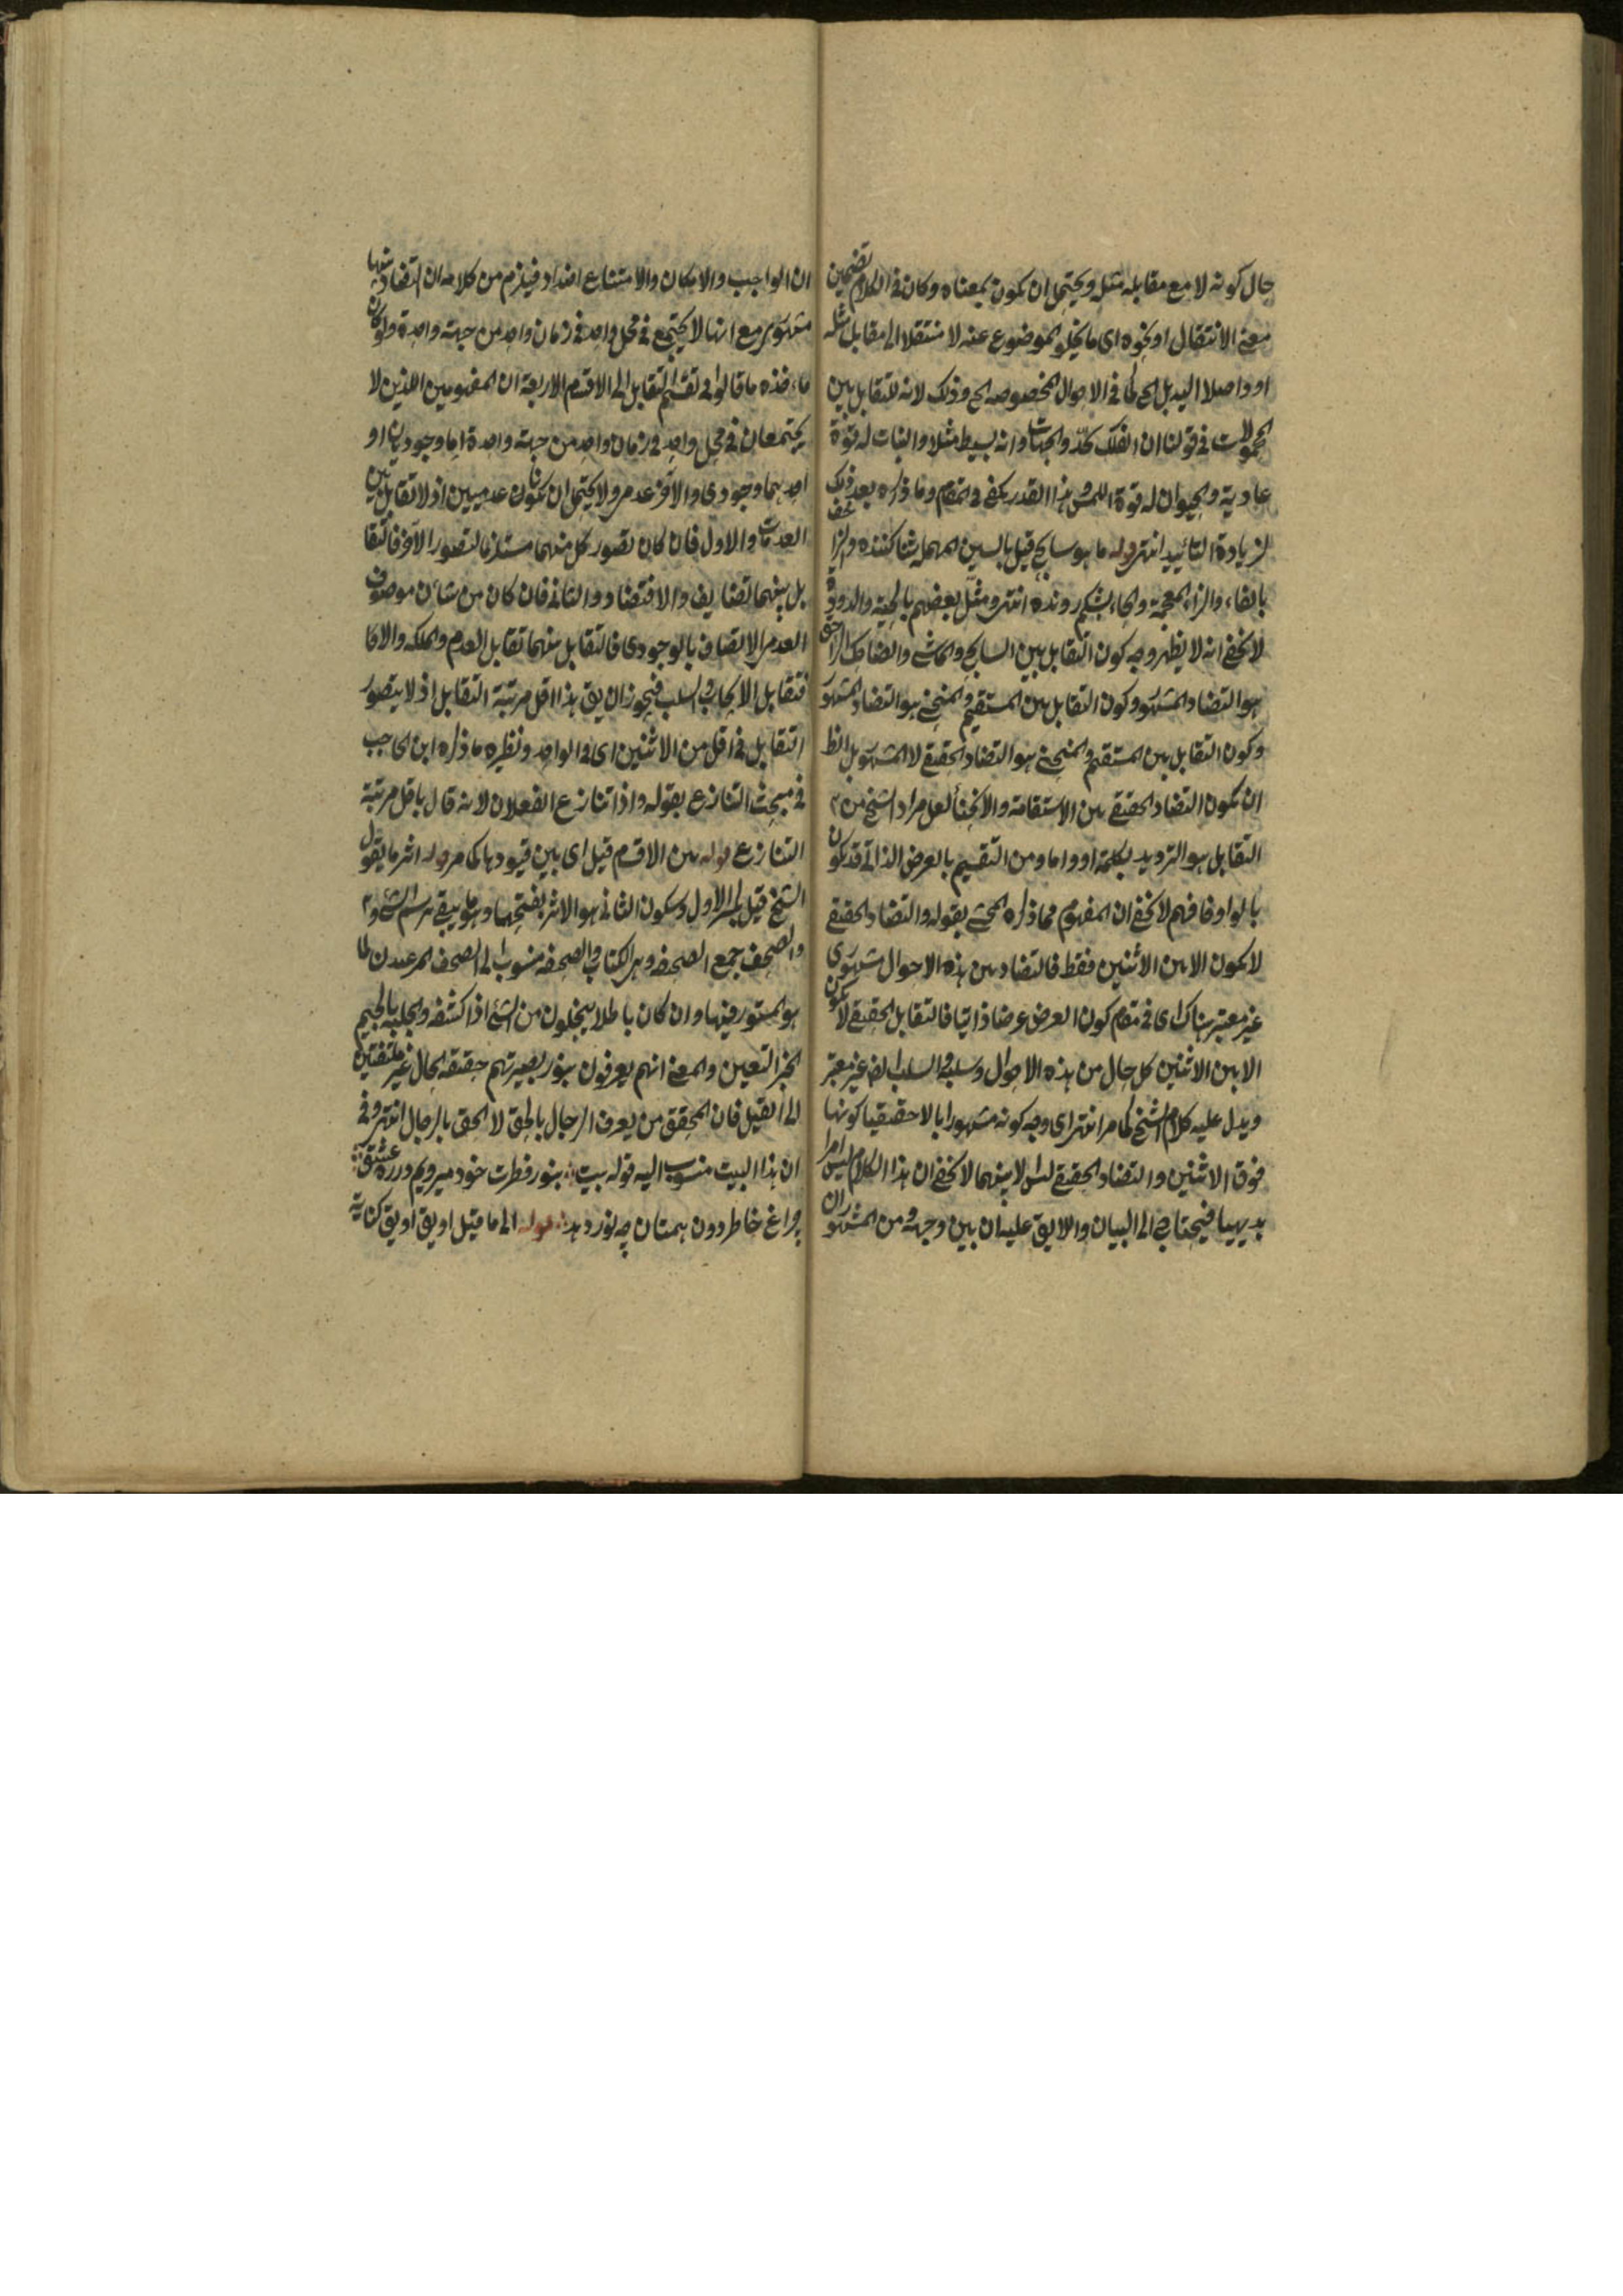 حال كونه لا مع مقابله مثله ويحتمل ان يكون بمعناه وكان فى الكلام تضمين
معنى الانتقال او نحوه اى ما يخلو الموضوع عنه لا منتقلا الى مقابل مثله
او واصلا اليه بل الخ كما فى الاحوال المخصوصه الخ وذلك لانه لا تقابل بين
المحمولات فى قولنا ان الفلك محدّد الجهات وانه بسيط مثلا والنبات له قوة
عادية والحيوان له قوة اللمس هذا القدر يكفى فى المقام وما ذكره بعد ذلك
لزيادة التائييد انتهى قوله ما هو سابح قيل بالسين المهملة شنا كننده
بالفاء والزاء المعجمة والحاء بشكم رونده انتهى ومثّل بعضهم بالحية والدود
لا يخفى انه لا يظهر وجه كون التقابل بين السابح والماشى والضاحك
هو التضاد المشهور وكون التقابل بين المستقيم والمنحنى هو التضاد المشهور
وكون التقابل بين المستقيم والمنحنى هو التضاد الحقيقى لا المشهور بل الظ
ان يكون التضاد الحقيقى بين الاستقامة والانحناء لعل مراد الشيخ من
التقابل هو الترديد بكلمة او واما ومن التقسيم بالعرض الذاتى قد يكون
بالواو فافهم لا يخفى ان المفهوم مما ذكره المحشى بقوله والتضاد الحقيقى
لا يكون الا بين الاثنين فقط فالتضاد بين هذه الاحوال مشهورى
غير معتبر هناك اى فى مقام كون العرض عرضا ذاتيا فالتقابل الحقيقى لا يكون
الا بين الاثنين كل حال من هذه الاحوال وسلبه والسلب ايض غير معتبر
ويدل عليه كلام الشيخ كما مر انتهى اى وجه كونه مشهورايا لا حقيقيا كونها
فوق الاثنين والتضاد الحقيقى ليس الا بينهما لا يخفى ان هذا الكلام ليس امرا
بديهيا فيحتاج الى البيان واللايق عليه ان يبين وجهه ومن المشهور ان
ان الواجب والامكان والامتناع اضداد فيلزم من كلامه ان التضاد بينها
مشهورى مع انها لا يجتمع فى محل واحد فى زمان واحد من جهة واحدة ولو كان
ما قالوا فى تقسيم التقابل الى الاقسام الاربعة ان المفهومين اللذين لا
يجتمعان فى محل واحد فى زمان واحد من جهة واحدة اما وجوديان او
احدهما وجودى والاخر عدمى ولا يحتمل ان يكونا عدميين اذ لا تقابل بين
العدميات والاول فان كان تصور كل منهما مستلزما لتصور الاخر فالتقا
بل بينهما تضايف والا فتضاد والثانى فان كان من شان موصوف
العدمى الاتصاف بالوجودى فالتقابل بينهما تقابل العدم والملكه والا فا
فتقابل الايجاب والسلب فيجوز ان يق هذا اقل مرتبة التقابل اذ لا يتصور
التقابل فى اقل من الاثنين اى فى الواحد ونظيره ما ذكره ابن الحاجب
فى مبحث التنازع بقوله واذا تنازع الفعلان لانه قال باقل مرتبة
التنازع قوله بين الاقسام قيل اى بين قيودها كما مر قوله اثر ما يقول
الشيخ قيل بكسر الاول وسكون الثانى هو الاثر بفتحهما وهو ما يبقى من رسم الشئ
والصحف جمع الصحيفه وهى الكتاب والصحفى منسوب الى الصحف
هو المستور فيها وان كان باطلا يتجلون من الشئ اذا كشفه والجلية بالجيم
الخبر اليقين والمعنى انهم يعرفون بنور بصيرتهم حقيقة الحال غير ملتفتين
الى القيل فان المحقق من يعرف الرجال بالحق لا الحق بالرجال انتهى وفى
ان هذا البيت منسوب اليه قوله بيت بنور فطرت خود ميرويم در ره عشق
چراغ خاطر دون همتان چه نور دهد قوله الى ما قيل او يق او يق كناية